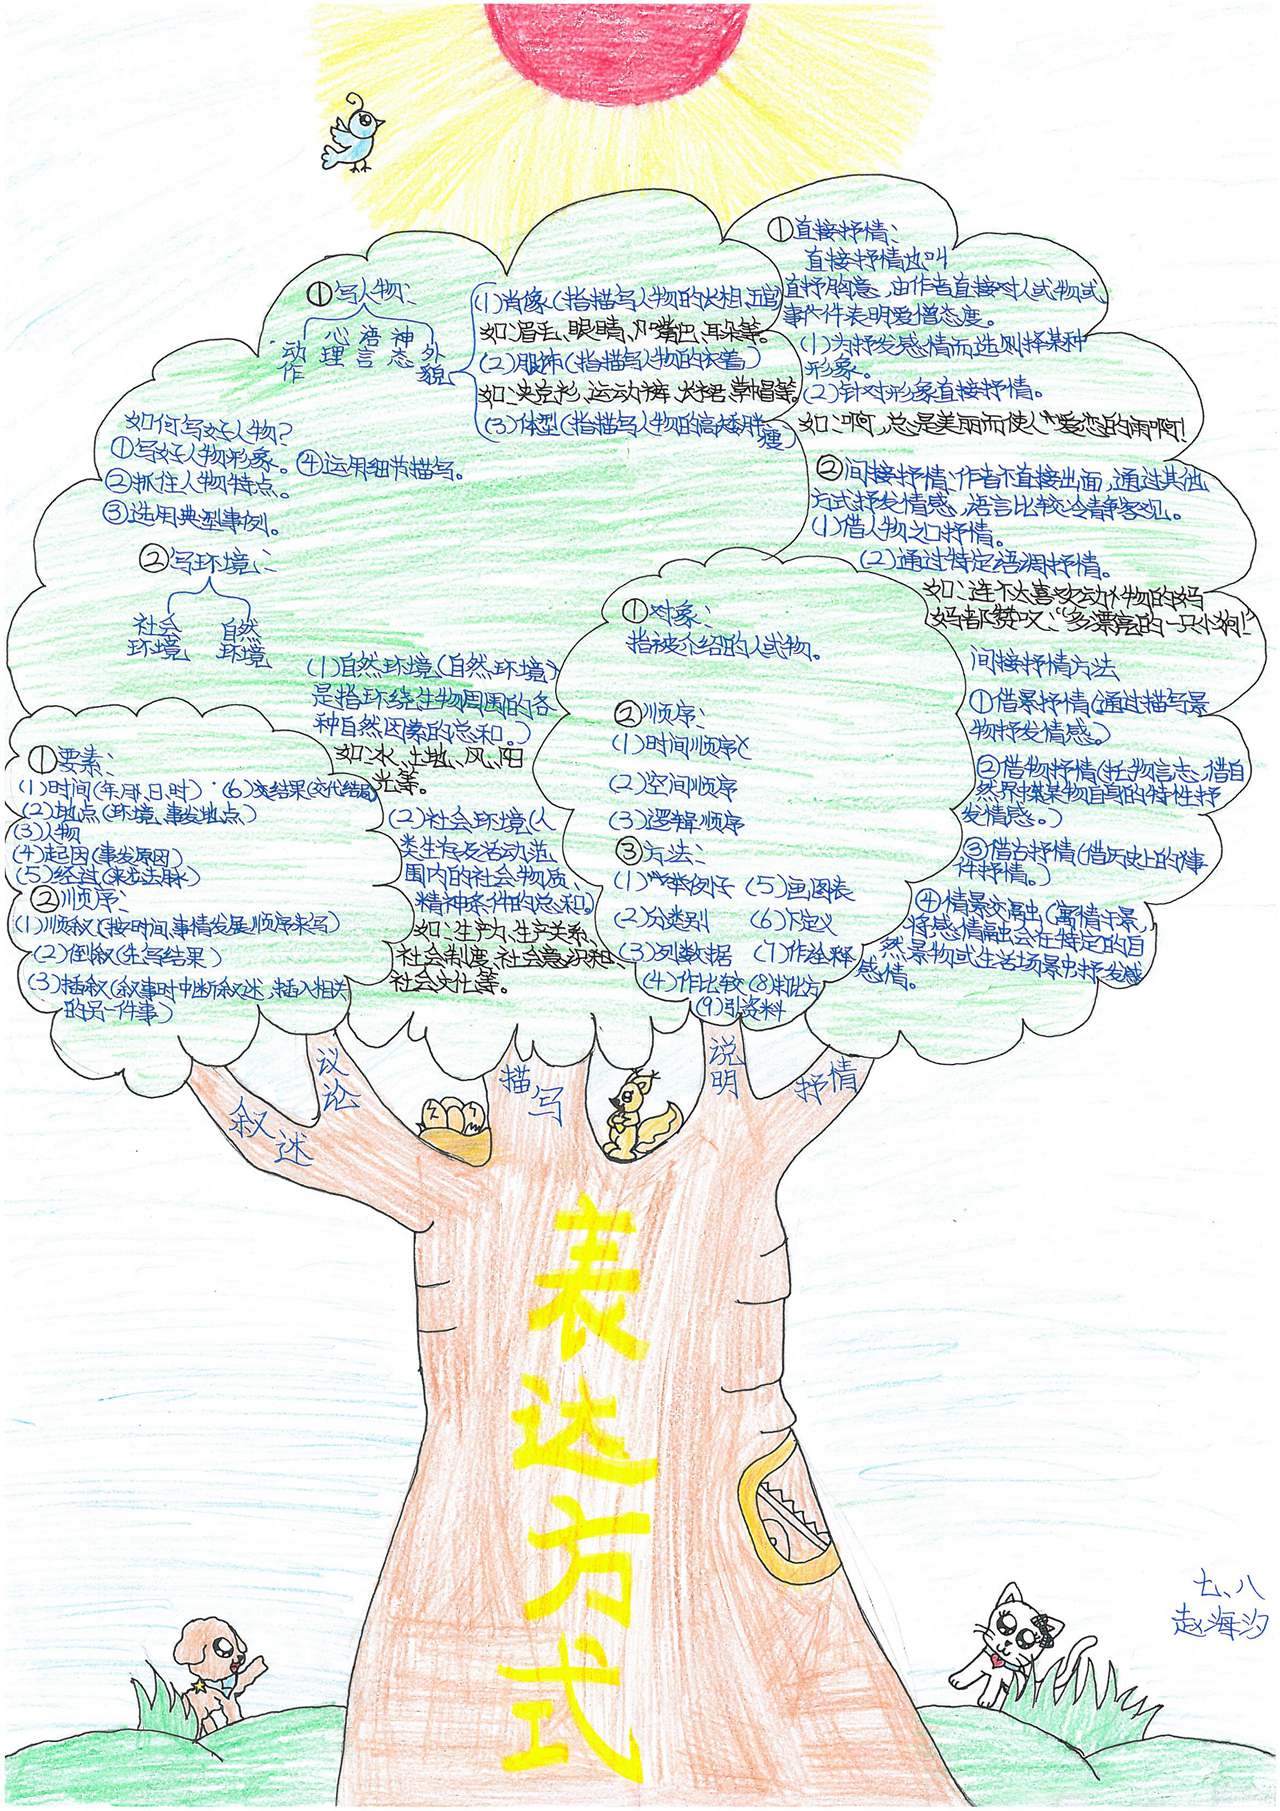 ①写人物：
动作 心理 语言 神态 外貌
(1)肖像(指描写人物的长相,五官
如：眉毛、眼睛、嘴巴、耳朵等。
(2)服饰(指描写人物的衣着)
如：夹克衫、运动裤、长裙、草帽等。
(3)体型(指描写人物的高矮胖瘦)
如何写好人物?
①写好人物形象。
④运用细节描写。
②抓住人物特点。
③选用典型事例。
②写环境：
社会环境
自然环境
(1)自然环境(自然环境
是指环绕生物周围的各
种自然因素的总和。)
如：水、土地、风、阳
光等。
(2)社会环境(人
类生存及活动范
围内的社会物质、
精神条件的总和。)
如：生产力、生产关系、
社会制度、社会意识和
社会文化等。
①直接抒情：
直接抒情也叫
直抒胸意、由作者直接对人或物或
事件表明爱憎态度。
(1)为抒发感情而选则择某种
形象。
(2)针对形象直接抒情。
如：啊,总是美丽而使人爱恋的雨啊!
②间接抒情：作者不直接出面,通过其他
方式抒发情感、语言比较冷静客观。
(1)借人物之口抒情。
(2)通过特定语调抒情。
如：连不太喜欢动物的妈
妈都赞叹：“多漂亮的一只小狗!”
间接抒情方法
①借景抒情(通过描写景
物抒发情感。)
②借物抒情(托物言志、借自
然界某物自身的特性抒
发情感。)
③借古抒情(借历史上的事
件抒情。)
④情景交融(寓情于景,
将感情融会在特定的自
然景物或生活场景中抒发感
情。
①对象：
指被介绍的人或物。
②顺序：
(1)时间顺序
(2)空间顺序
(3)逻辑顺序
③方法：
(1)举例子 (5)画图表
(2)分类别 (6)下定义
(3)列数据 (7)作诠释
(4)作比较 (8)打比方
(9)引资料
①要素：
(1)时间(年、月、日、时) (6)结果(交代结局)
(2)地点(环境、事发地点)
(3)人物
(4)起因(事发原因)
(5)经过(来龙去脉)
②顺序：
(1)顺叙(按时间、事情发展顺序来写)
(2)倒叙(先写结果)
(3)插叙(叙事时中断叙述、插入相关
的另一件事)
叙述
议论
描写
说明
抒情
表达方式
七、八
赵海汐